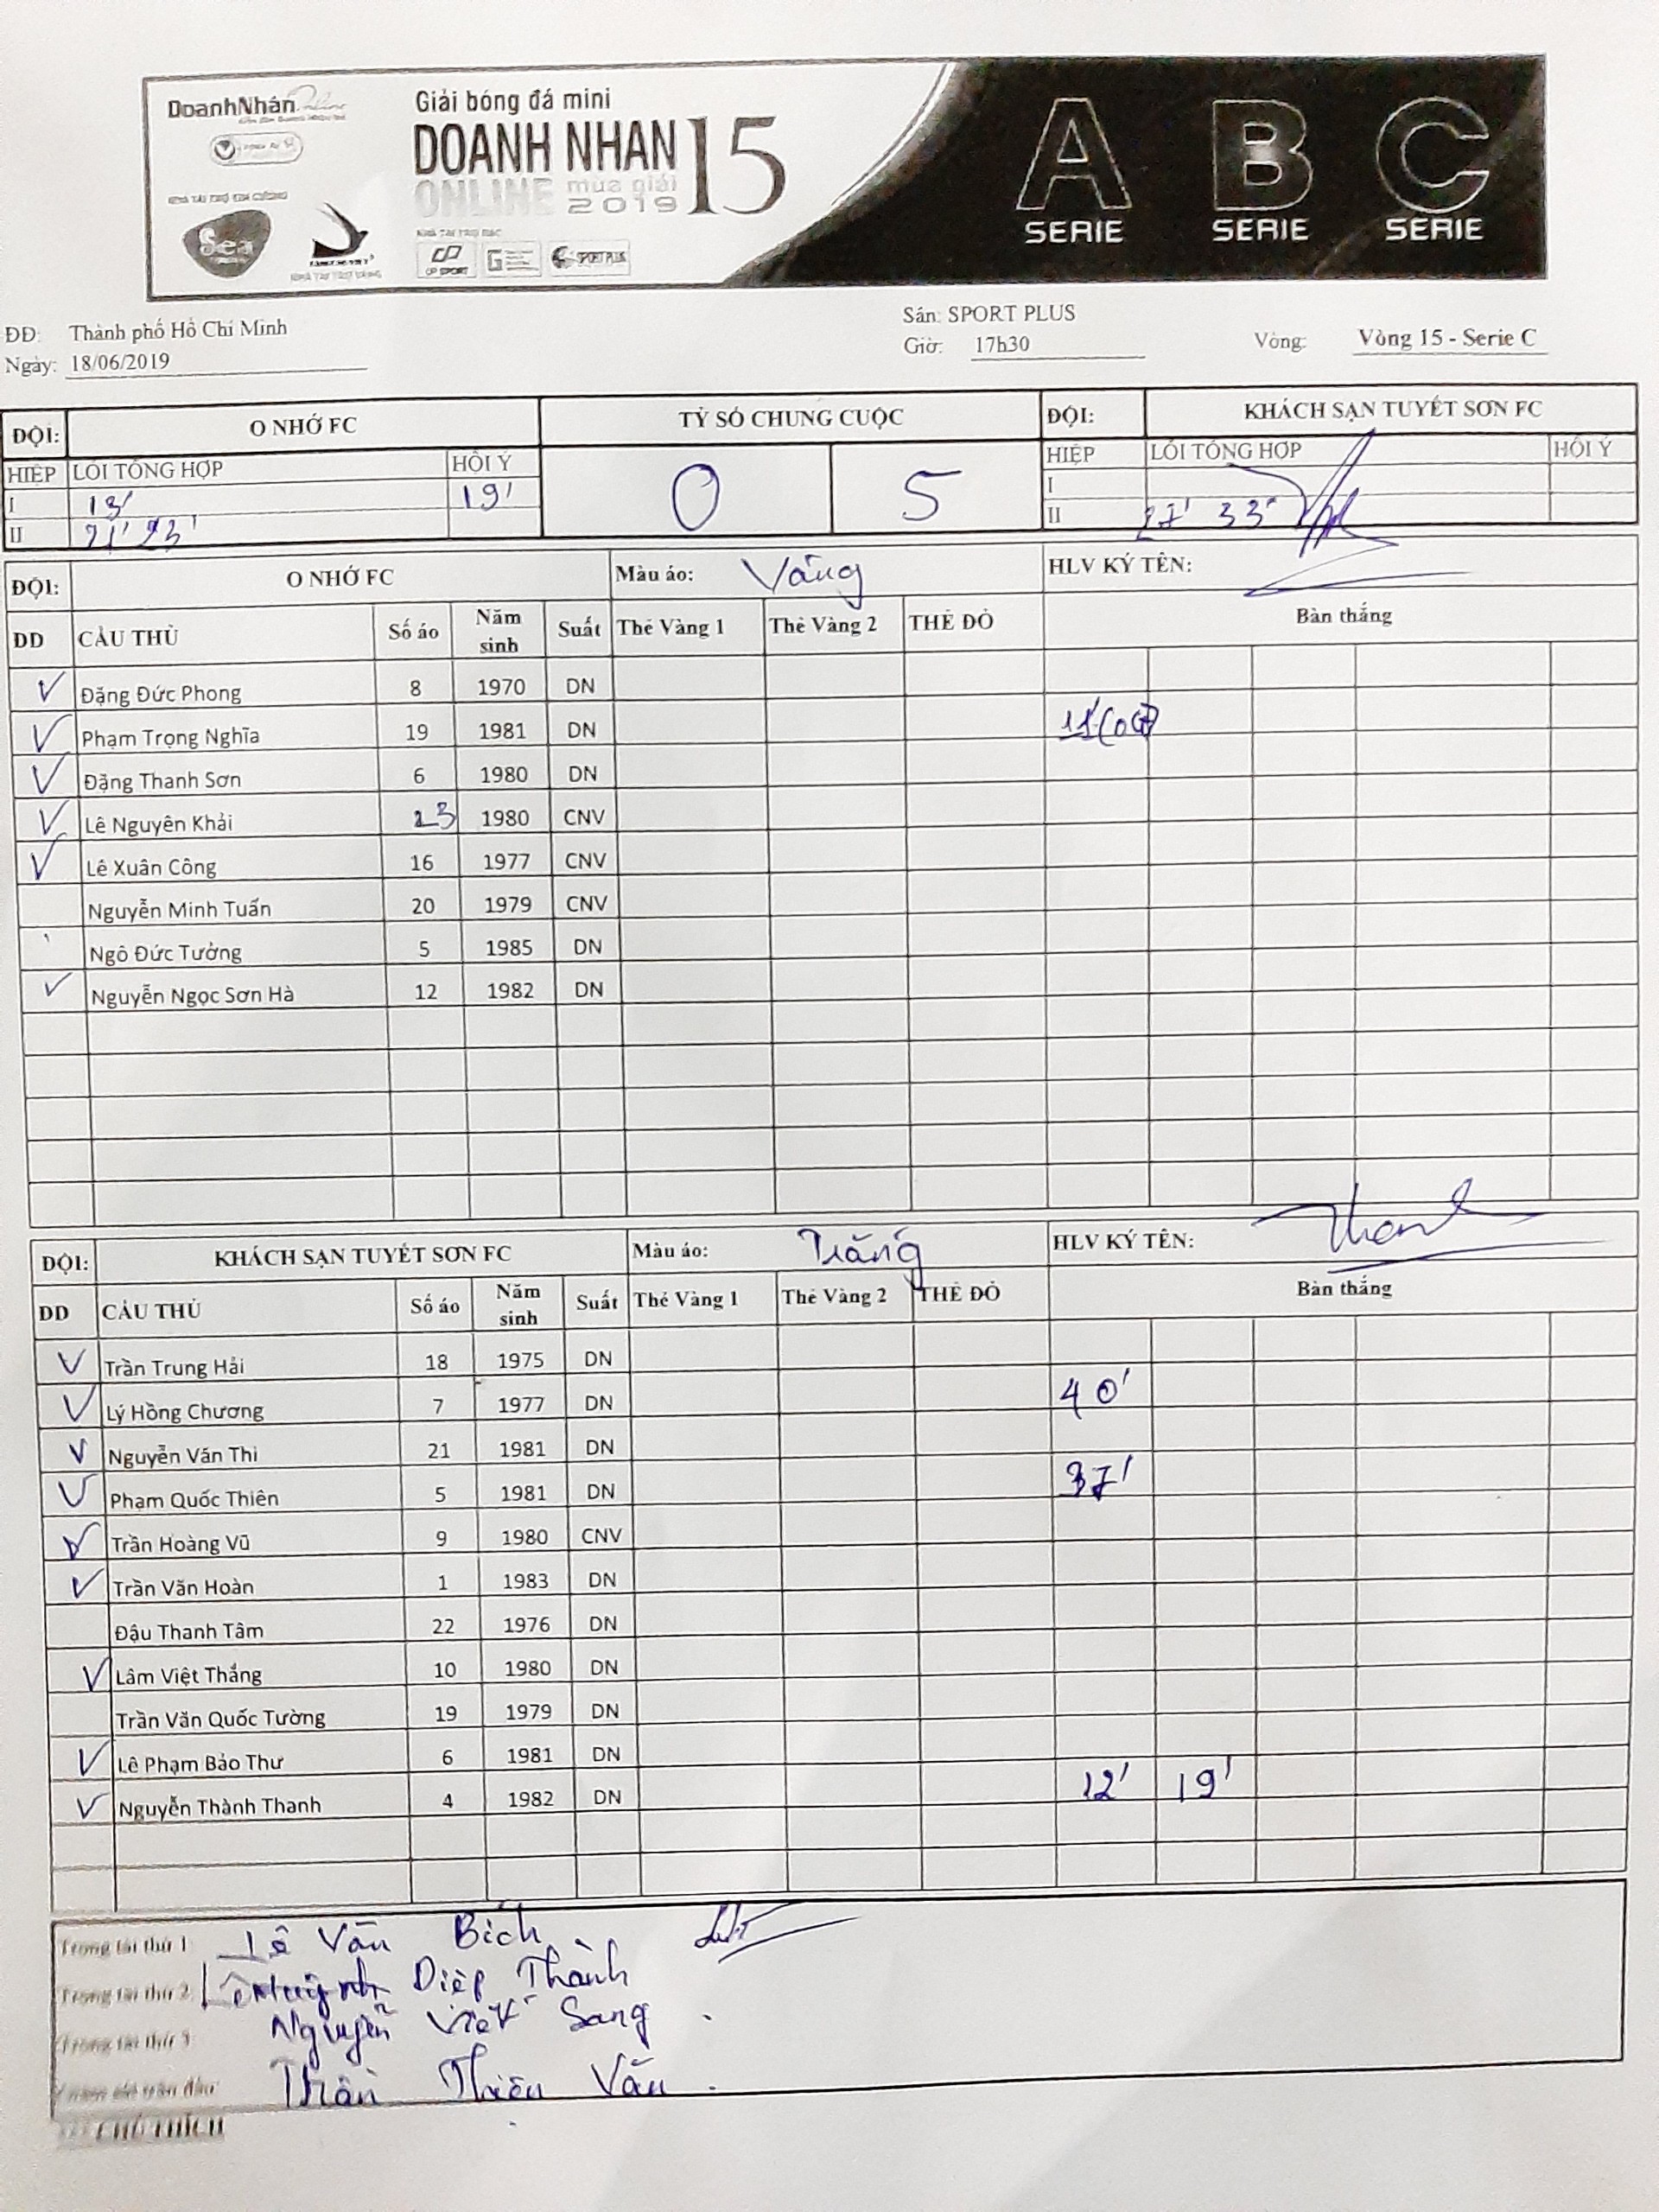 DoanhNhân online
Giải bóng đá mini
DOANH NHAN 15
ONLINE mua giải
2019
NHÀ TÀI TRỢ KIM CƯƠNG
Sea
NHÀ TÀI TRỢ VÀNG
NHÀ TÀI TRỢ BẠC
CP SPORT
SPORT PLUS
A B C
SERIE SERIE SERIE
ĐĐ: Thành phố Hồ Chí Minh
Sân: SPORT PLUS
Ngày: 18/06/2019
Giờ: 17h30
Vòng: Vòng 15 - Serie C
ĐỘI: O NHỚ FC TỶ SỐ CHUNG CUỘC ĐỘI: KHÁCH SẠN TUYẾT SƠN FC
HIỆP LỖI TỔNG HỢP HỘI Ý 0 5 HIỆP LỖI TỔNG HỢP HỘI Ý
I 13' 19' I
II 21' 23' II 27' 33'
ĐỘI: O NHỚ FC Màu áo: Vàng HLV KÝ TÊN:
DD CẦU THỦ Số áo Năm sinh Suất Thẻ Vàng 1 Thẻ Vàng 2 THẺ ĐỎ Bàn thắng
V Đặng Đức Phong 8 1970 DN
V Phạm Trọng Nghĩa 19 1981 DN 11'(OG)
V Đặng Thanh Sơn 6 1980 DN
V Lê Nguyên Khải 23 1980 CNV
V Lê Xuân Công 16 1977 CNV
Nguyễn Minh Tuấn 20 1979 CNV
Ngô Đức Tưởng 5 1985 DN
V Nguyễn Ngọc Sơn Hà 12 1982 DN
ĐỘI: KHÁCH SẠN TUYẾT SƠN FC Màu áo: Trắng HLV KÝ TÊN: Thanh
DD CẦU THỦ Số áo Năm sinh Suất Thẻ Vàng 1 Thẻ Vàng 2 THẺ ĐỎ Bàn thắng
V Trần Trung Hải 18 1975 DN
V Lý Hồng Chương 7 1977 DN 40'
V Nguyễn Văn Thi 21 1981 DN
V Phạm Quốc Thiên 5 1981 DN 37'
V Trần Hoàng Vũ 9 1980 CNV
V Trần Văn Hoàn 1 1983 DN
Đậu Thanh Tâm 22 1976 DN
V Lâm Việt Thắng 10 1980 DN
Trần Văn Quốc Tường 19 1979 DN
V Lê Phạm Bảo Thư 6 1981 DN
V Nguyễn Thành Thanh 4 1982 DN 12' 19'
Trọng tài thứ 1 Lê Văn Bích
Trọng tài thứ 2 Diệp Thành
Trọng tài thứ 3 Nguyễn Việt Sang
Trần Thiện Văn
GHI CHÚ